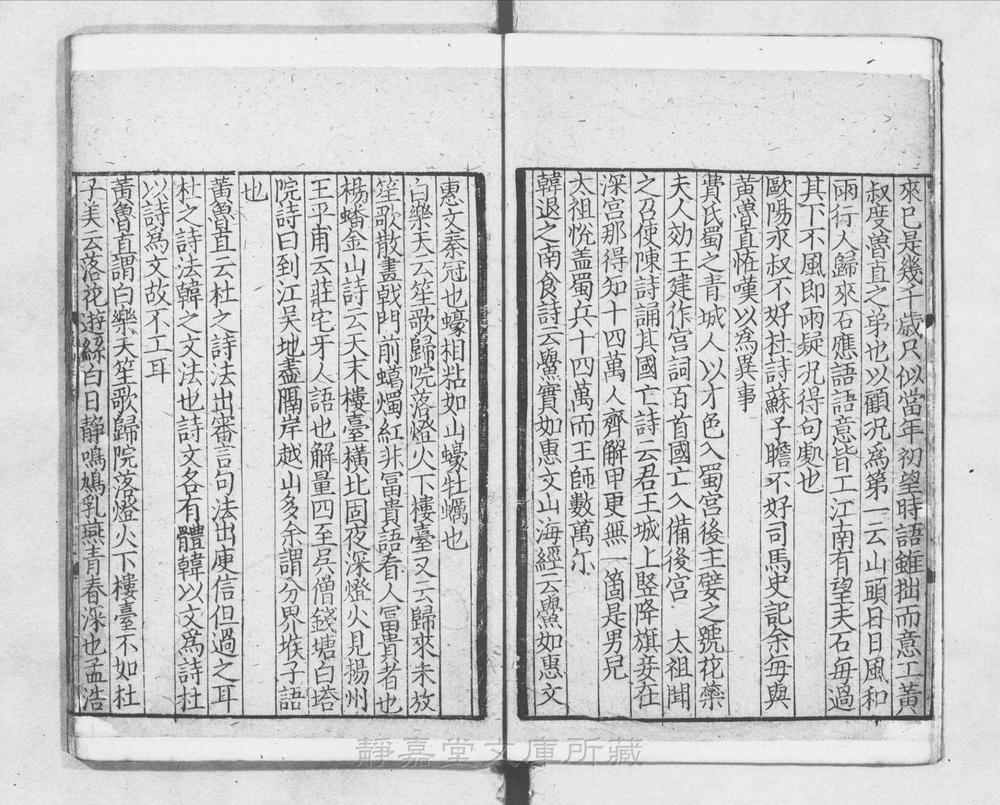 來已是幾千歲只似當年初望時語雖拙而意工黃
叔度魯直之弟也以顧況爲第一云山頭日日風和
雨行人歸來石應語語意皆工江南有望夫石每過
其下不風即雨疑況得句處也
歐陽永叔不好杜詩蘇子瞻不好司馬史記余每與
黃魯直恠嘆以爲異事
費氏蜀之青城人以才色入蜀宮後主嬖之號花蘂
夫人効王建作宮詞百首國亡入備後宮 太祖聞
之召使陳詩誦其國亡詩云君王城上竪降旗妾在
深宮那得知十四萬人齊解甲更無一箇是男兒
太祖恱盖蜀兵十四萬而王師數萬尓
韓退之南食詩云鱟實如惠文山海經云鱟如惠文
惠文秦冠也蠔相粘如山蠔牡蠣也
白樂天云笙歌歸院落燈火下樓臺又云歸來未放
笙歌散畫戟門前蠟燭紅非冨貴語看人冨貴者也
楊蟠金山詩云天末樓臺橫北固夜深燈火見揚州
王平甫云莊宅牙人語也解量四至吳僧錢塘白塔
院詩曰到江吳地盡隔岸越山多余謂分界堠子語
也
黃魯直云杜之詩法出審言句法出庾信但過之耳
杜之詩法韓之文法也詩文各有體韓以文爲詩杜
以詩爲文故不工耳
黃魯直謂白樂天笙歌歸院落燈火下樓臺不如杜
子美云落花遊絲白日靜鳴鳩乳燕青春深也孟浩
靜嘉堂文庫所藏